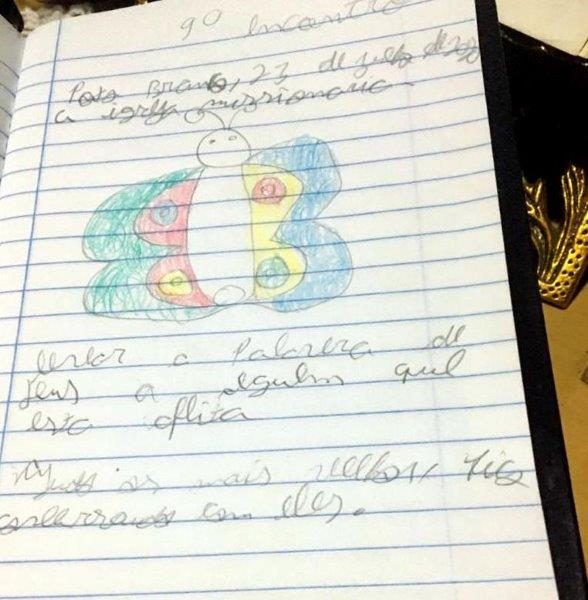 9º Encontro
Pato Branco, 23 de julho de 2020
a igreja missionaria
levar a Palavra de
Jeus a alguém que
esta aflita
Ajudo os mais velhos, fico
conversando com eles.